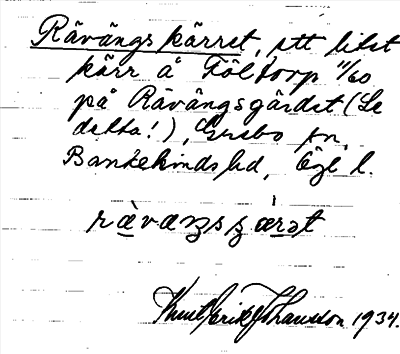 Rävängskärret, ett litet
kärr åFöltorp 11/60
på Rävängsgärdet (Se
detta!), Grebo sn,
Bankekinds hd, Ögl l.
Knut Erik Johansson 1934.